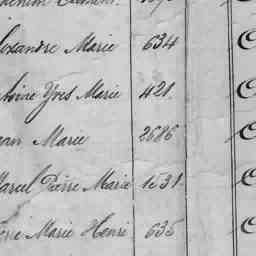 lexandre Marie 634
toine Yves Marie 421.
ean Marie 2686
Marcel Pierre Marie 1531.
Marie Henri 635